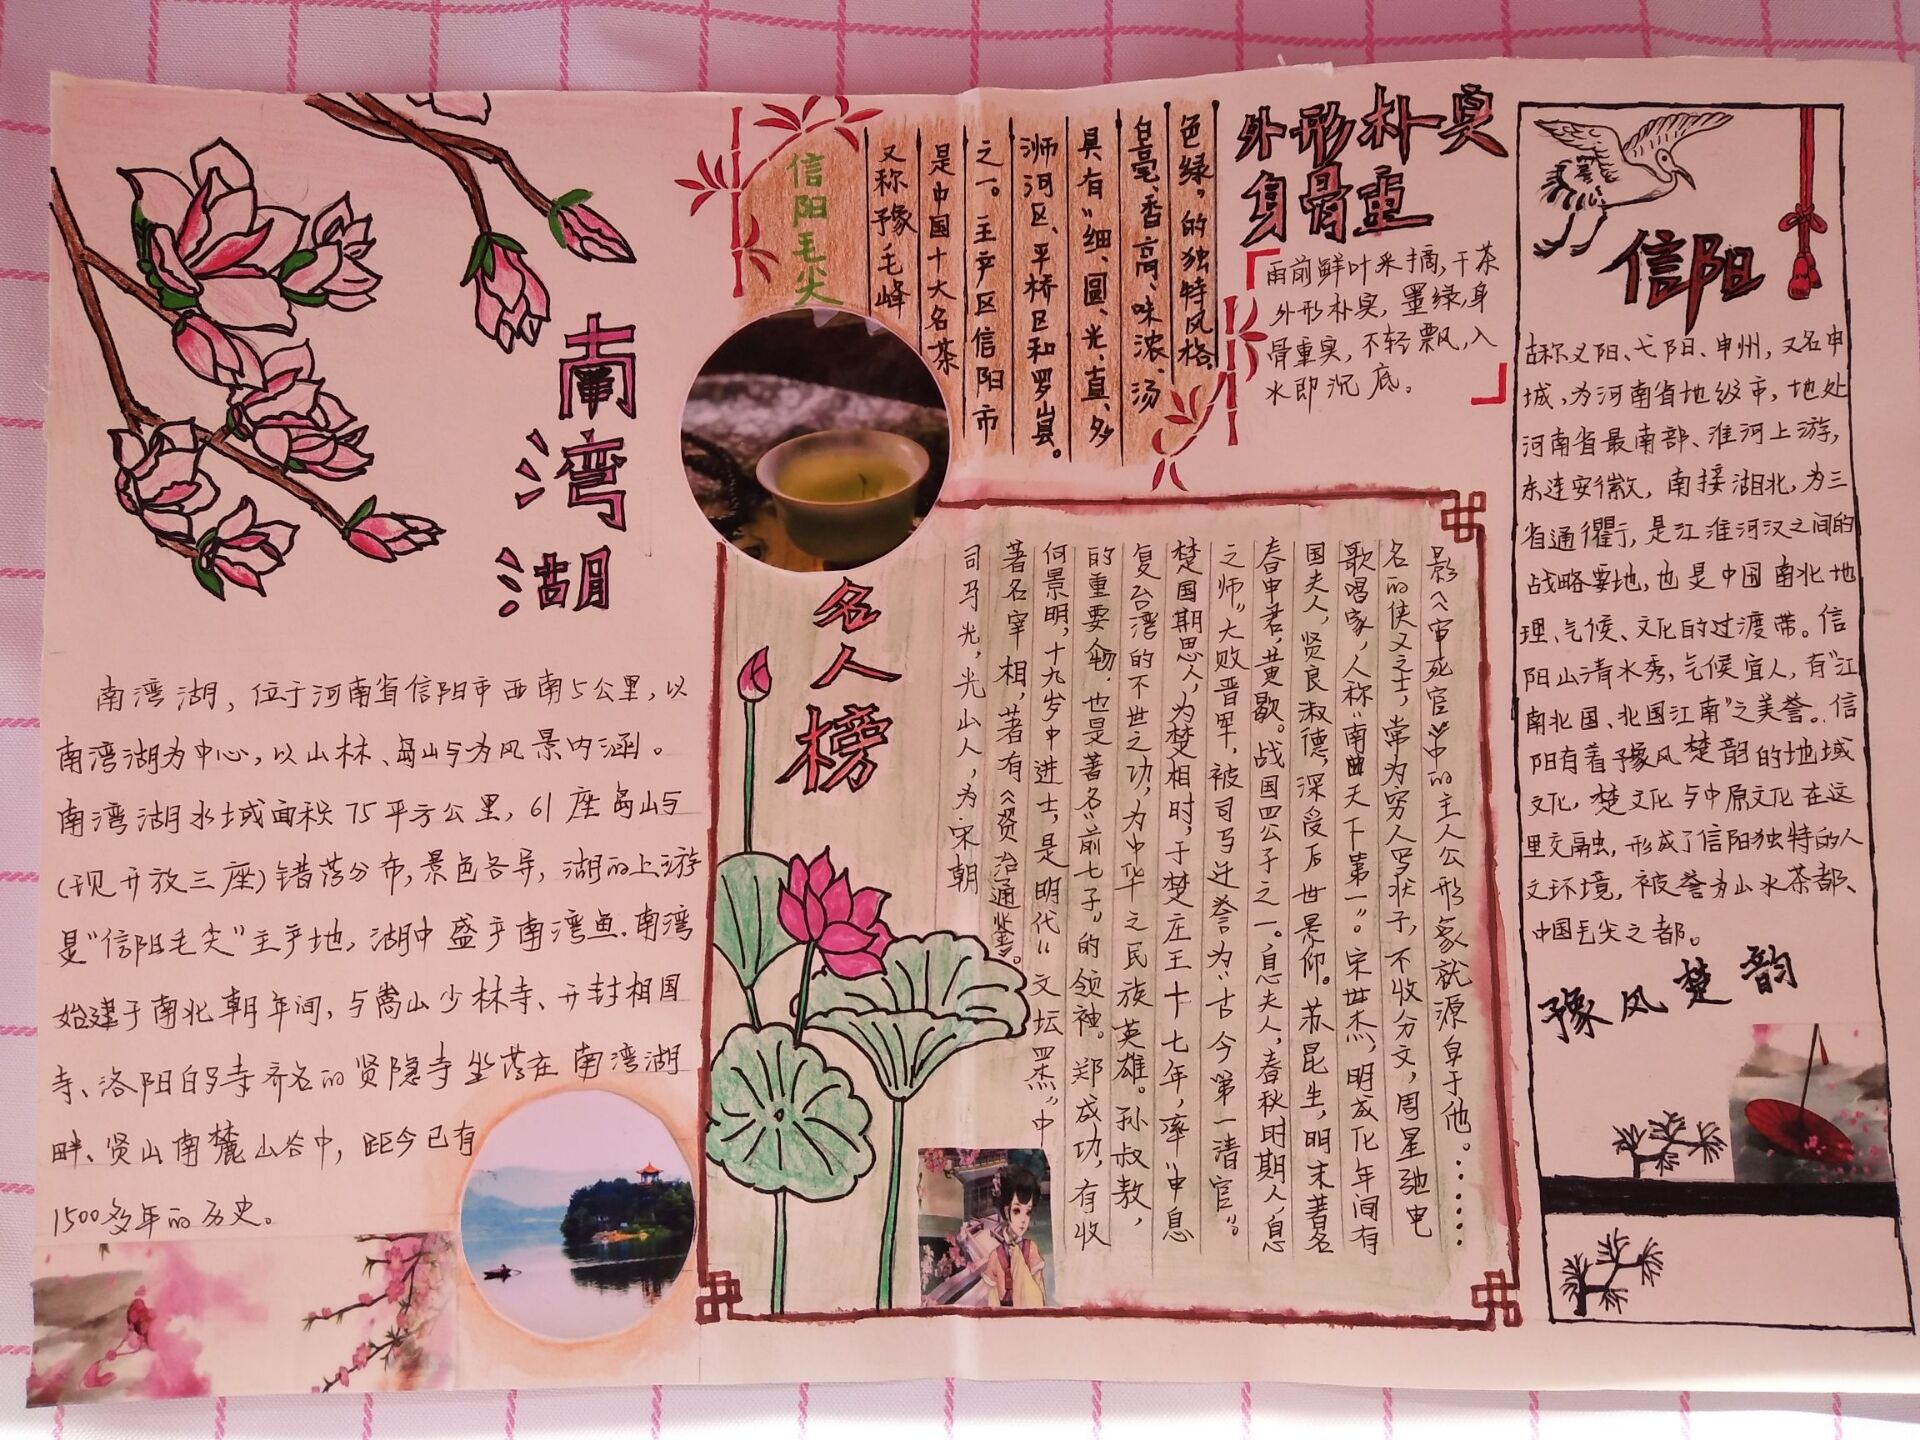 南湾湖
南湾湖，位于河南省信阳市西南5公里，以
南湾湖为中心，以山林、岛屿为风景内涵。
南湾湖水域面积75平方公里，61座岛屿
(现开放三座)错落分布，景色各异，湖的上游
是“信阳毛尖”主产地，湖中盛产南湾鱼.南湾
始建于南北朝年间，与嵩山少林寺、开封相国
寺、洛阳白马寺齐名的贤隐寺坐落在南湾湖
畔、贤山南麓山谷中，距今已有
1500多年的历史。
信阳毛尖
又称豫毛峰
是中国十大名茶
之一。主产区信阳市
浉河区、平桥区和罗山县。
具有“细、圆、光、直、多
白毫、香高、味浓、汤
色绿”的独特风格
外形朴实
身骨重
雨前鲜叶采摘，干茶
外形朴实，墨绿，身
骨重实，不轻飘，入
水即沉底。
名人榜
司马光，光山人，为宋朝
著名宰相，著有《资治通鉴》。
何景明，十九岁中进士，是明代“文坛四杰”中
的重要人物，也是著名“前七子”的领袖。郑成功，有收
复台湾的不世之功，为中华之民族英雄。孙叔敖，
楚国期思人，为楚相时，于楚庄王十七年，率“申息
之师”大败晋军，被司马迁誉为“古今第一清官”。
春申君，黄歇。战国四公子之一。息夫人，春秋时期人，息
国夫人，贤良淑德，深受后世景仰。苏昆生，明末著名
歌唱家，人称“南曲天下第一”。宋世杰，明成化年间有
名的侠义之士，常为穷人写状子，不收分文，周星驰电
影《审死官》中的主人公形象就源自于他。……
信阳
古称义阳、弋阳、申州，又名申
城，为河南省地级市，地处
河南省最南部、淮河上游，
东连安徽，南接湖北，为三
省通衢，是江淮河汉之间的
战略要地，也是中国南北地
理、气候、文化的过渡带。信
阳山清水秀，气候宜人，有“江
南北国、北国江南”之美誉。信
阳有着豫风楚韵的地域
文化，楚文化与中原文化在这
里交融，形成了信阳独特的人
文环境，被誉为山水茶都、
中国毛尖之都。
豫风楚韵